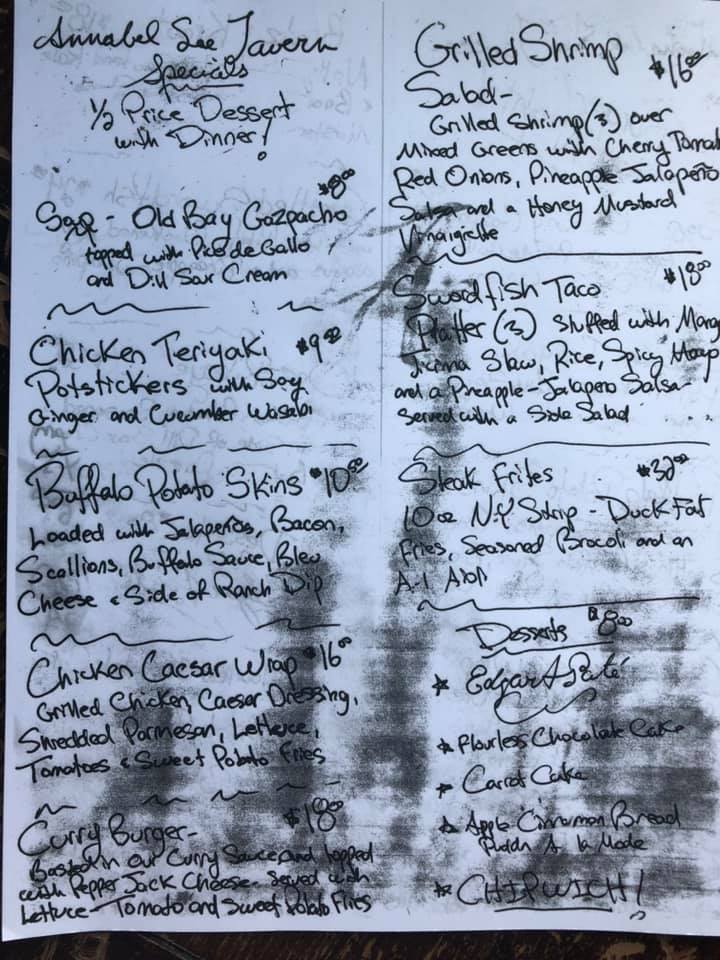 Annabel Lee Tavern
Specials
1/2 Price Dessert
with Dinner!
$8.00
Soup - Old Bay Gazpacho
topped with Pico de Gallo
and Dill Sour Cream
Chicken Teriyaki $9.00
Potstickers with Soy
Ginger and Cucumber Wasabi
Buffalo Potato Skins $10.00
Loaded with Jalapeños, Bacon,
Scallions, Buffalo Sauce, Bleu
Cheese & Side of Ranch Dip
Chicken Caesar Wrap $16.00
Grilled Chicken, Caesar Dressing,
Shredded Parmesan, Lettuce,
Tomatoes & Sweet Potato Fries
Curry Burger- $18.00
Basted in our Curry Sauce and topped
with Pepper Jack Cheese. Served with
Lettuce - Tomato and Sweet Potato Fries
Grilled Shrimp $16.00
Salad-
Grilled Shrimp (3) over
Mixed Greens with Cherry Tomat
Red Onions, Pineapple Jalapeño
Salsa and a Honey Mustard
Vinaigrette
Swordfish Taco $18.00
Platter (3) Stuffed with Mang
Jicima Slaw, Rice, Spicy Mayo
and a Pineapple-Jalapeno Salsa-
Served with a Side Salad
Steak Frites $32.00
10oz N.Y Strip - Duck Fat
Fries, Seasoned Brocoli and an
A-1 Aioli
Desserts $8.00
* Edgar's Paté
* Flourless Chocolate Cake
* Carrot Cake
* Apple Cinnamon Bread
Puddn A la Mode
* CHIPWICH!